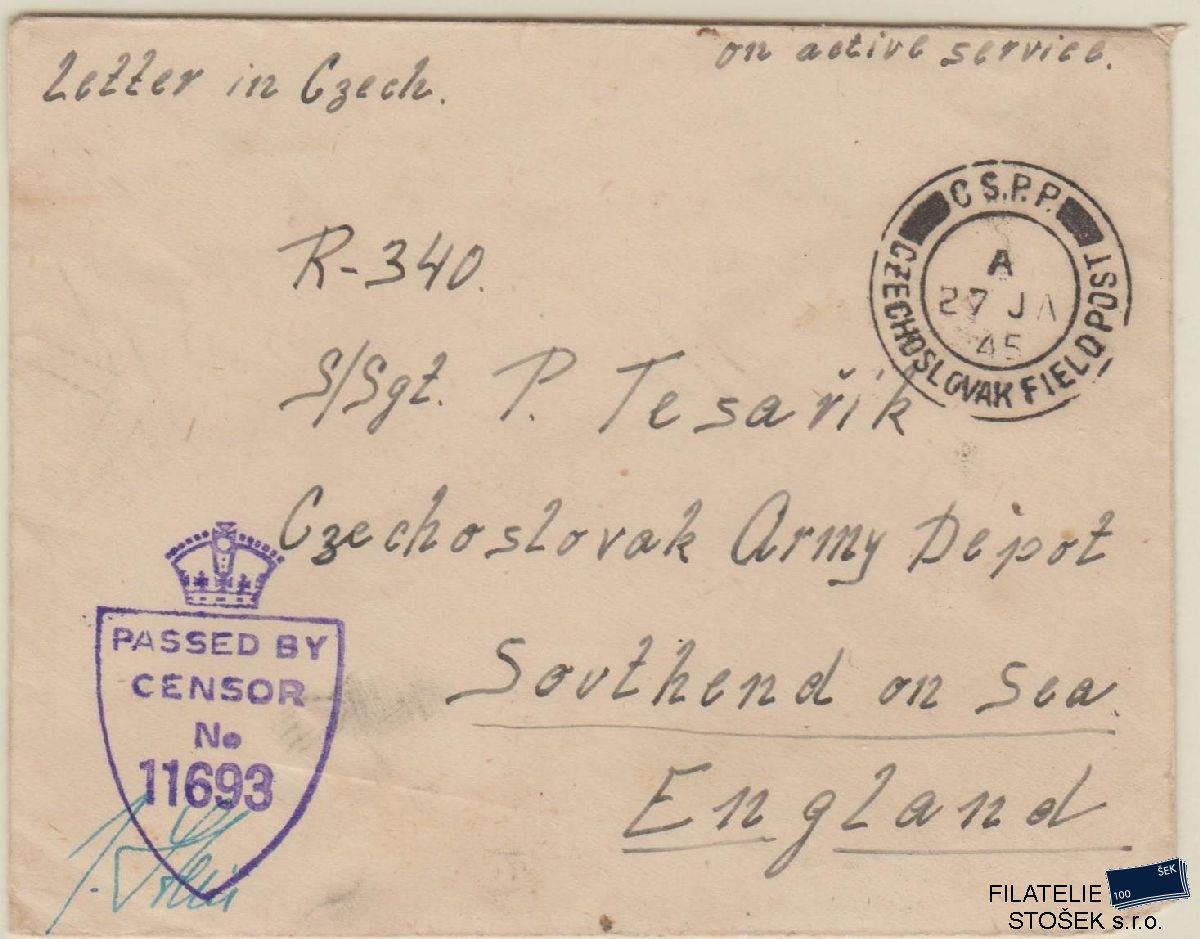 Letter in Czech.
on active service.
C Š.P.P.
CZECHOSLOVAK FIELD POST
A
27 JA
45
R-340.
S/Sgt. P. Tesařík
Czechoslovak Army Depot
Southend on Sea
England
PASSED BY
CENSOR
No
11693
FILATELIE
STOŠEK s.r.o.
100
ŠEK